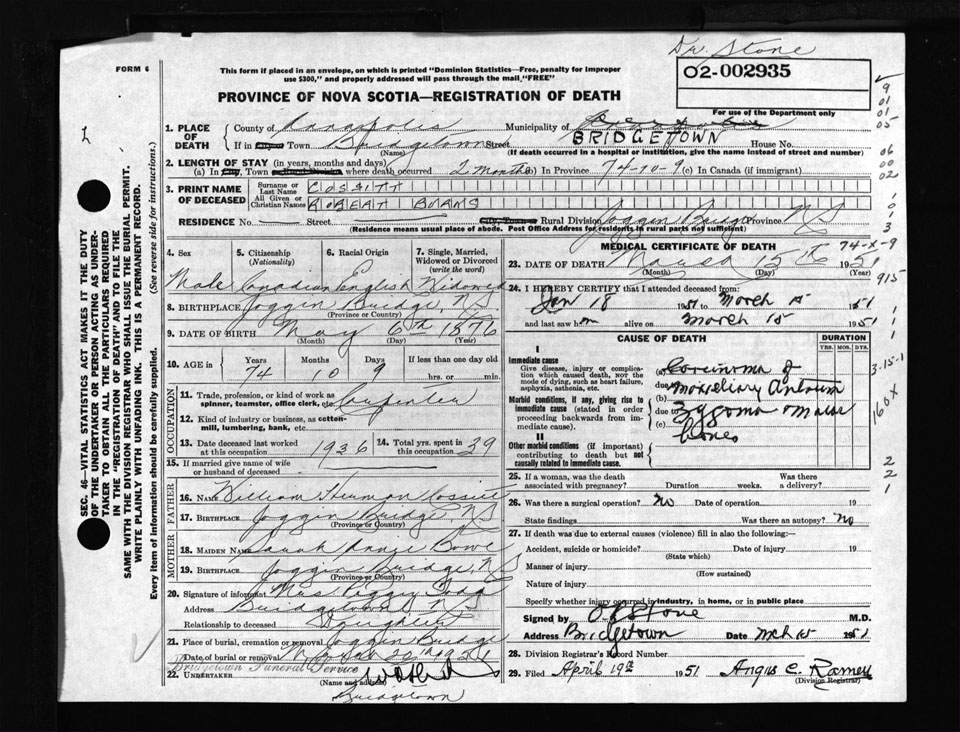 Dr. Stone
FORM 6
This form if placed in an envelope, on which is printed "Dominion Statistics—Free, penalty for improper
use $300," and properly addressed will pass through the mail "FREE"
02-002935
PROVINCE OF NOVA SCOTIA—REGISTRATION OF DEATH
For use of the Department only
1. PLACE OF DEATH
County of Annapolis Municipality of
If in Town Bridgetown Street BRIDGETOWN House No.
(Name) (If death occurred in a hospital or institution, give the name instead of street and number)
2. LENGTH OF STAY (in years, months and days)
(a) In City, Town where death occurred 2 months (b) In Province 74-10-9 (c) In Canada (if immigrant)
3. PRINT NAME OF DECEASED
Surname or Last Name COSSITT
All Given or Christian Names ROBERT BURNS
RESIDENCE No. Street Rural Division Joggin Bridge Province NS
(Residence means usual place of abode. Post Office Address for residents in rural parts not sufficient)
4. Sex 5. Citizenship (Nationality) 6. Racial Origin 7. Single, Married, Widowed or Divorced (write the word)
Male Canadian English Widowed
8. BIRTHPLACE Joggin Bridge, NS
(Province or Country)
9. DATE OF BIRTH May 6th 1876
(Month) (Day) (Year)
10. AGE in Years Months Days If less than one day old
74 10 9 hrs. or min.
OCCUPATION
11. Trade, profession, or kind of work as spinner, teamster, office clerk, etc. Carpenter
12. Kind of industry or business, as cotton-mill, lumbering, bank, etc.
13. Date deceased last worked at this occupation 1936 14. Total yrs. spent in 39
15. If married give name of wife or husband of deceased
FATHER
16. NAME William Herman Cossitt
17. BIRTHPLACE Joggin Bridge, NS
(Province or Country)
MOTHER
18. MAIDEN NAME Sarah Bowe
19. BIRTHPLACE Joggin Bridge, NS
(Province or Country)
20. Signature of informant Mrs. Peggy
Address Bridgetown NS
Relationship to deceased Daughter
21. Place of burial, cremation or removal Joggin Bridge
Date of burial or removal 1951
Bridgetown Funeral Service
22. UNDERTAKER
(Name and address)
Bridgetown
MEDICAL CERTIFICATE OF DEATH 74-X-9
23. DATE OF DEATH March 15th 1951
(Month) (Day) (Year)
24. I HEREBY CERTIFY that I attended deceased from:
Jan 18 1951 to March 15 1951
and last saw him alive on March 15 1951
CAUSE OF DEATH DURATION
YRS. MOS. DYS.
I
Immediate cause
Give disease, injury or complication which caused death, not the mode of dying, such as heart failure, asphyxia, asthenia, etc.
(a) Carcinoma of
due Maxillary Antrum
Morbid conditions, if any, giving rise to immediate cause (stated in order proceeding backwards from immediate cause).
(b)
due Zygoma + malar
(c) bones
II
Other morbid conditions (if important) contributing to death but not causally related to immediate cause.
25. If a woman, was the death associated with pregnancy? Duration weeks. Was there a delivery?
26. Was there a surgical operation? No Date of operation 19
State findings Was there an autopsy? No
27. If death was due to external causes (violence) fill in also the following:—
Accident, suicide or homicide? Date of injury 19
(State which)
Manner of injury
(How sustained)
Nature of injury
Specify whether injury occurred in industry, in home, or in public place
Signed by Stone M.D.
Address Bridgetown Date Mch 15 1951
28. Division Registrar's Record Number
29. Filed April 19th 1951 Angus C. Ramey
(Division Registrar)
SEC. 46—VITAL STATISTICS ACT MAKES IT THE DUTY
OF THE UNDERTAKER OR PERSON ACTING AS UNDER-
TAKER TO OBTAIN ALL THE PARTICULARS REQUIRED
IN THE "REGISTRATION OF DEATH" AND TO FILE THE
SAME WITH THE DIVISION REGISTRAR WHO SHALL ISSUE THE BURIAL PERMIT.
WRITE PLAINLY WITH UNFADING INK. THIS IS A PERMANENT RECORD.
Every item of information should be carefully supplied. (See reverse side for instructions.)
9
01
01
05
06
00
02
1
0
1
3
915
3-15-1
160X
2
2
1